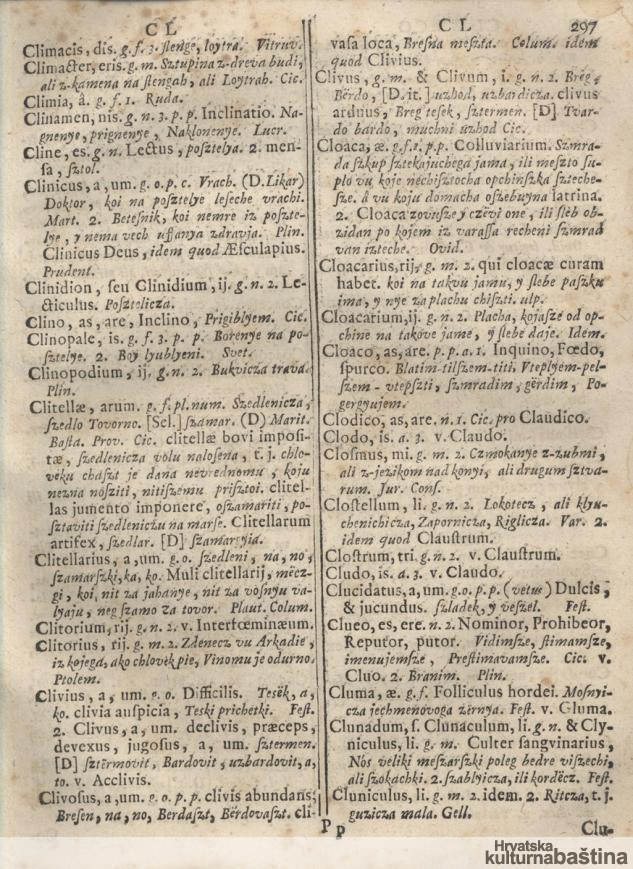 C L
Climacis, dis. g. f. 3. slenge, loytra. Vitruv.
Climacter, eris. g. m. Sztupina z-dreva budi,
ali z-kamena na slengah, ali Loytrah. Cic.
Climia, â. g. f. 1. Ruda.
Clinamen, nis. g. n. 3. p. p. Inclinatio. Na-
gnenye, prignenye, Naklonenye. Lucr.
Cline, es. g. n. Lectus, posztelya. 2. men-
sa, sztol.
Clinicus, a, um. g. o. p. c. Vrach. (D. Likar)
Doktor, koi na posztelye leseche vrachi.
Mart. 2. Betesnik, koi nemre iz poszte-
lye, y nema vech uffanya zdravja. Plin.
Clinicus Deus, idem quod Æsculapius.
Prudent.
Clinidion, seu Clinidium, ij. g. n. 2. Le-
cticulus. Posztelicza.
Clino, as, are, Inclino, Prigiblyem. Cic.
Clinopale, is. g. f. 3. p. p. Borenye na po-
sztelye. 2. Boy lyublyeni. Svet.
Clinopodium, ij. g. n. 2. Bukvicza trava.
Plin.
Clitellæ, arum. g. f. pl. num. Szedlenicza,
szedlo Tovorno. [Sel.] szamar. (D) Marit.
Basta. Prov. Cic. clitellæ bovi imposi-
tæ, szedlenicza volu nalosena, t. j. chlo-
vëku chászt je dana nevrednomu, koju
nezna nósziti, nitiszemu prisztoi. clitel-
las jumento imponere, oszamariti, po-
sztaviti szedleniczu na marse. Clitellarum
artifex, szedlar. [D] szamargyia.
Clitellarius, a, um. g. o. szedleni, na, no,
szamarszki, ka, ko. Muli clitellarij, mëcz-
gi, koi, nit za jahanye, nit za vosnyu va-
lyaju, neg szamo za tovor. Plaut. Colum.
Clitorium, rij. g. n. 2. v. Interfœminæum.
Clitorius, rij. g. m. 2. Zdenecz vu Arkadie,
iz kojega, ako chlovëk pie, Vinomu je odurno.
Ptolem.
Clivius, a, um. g. o. Difficilis. Tesëk, a,
ko. clivia auspicia, Teski prichetki. Fest.
2. Clivus, a, um. declivis, præceps,
devexus, jugosus, a, um. sztermen.
[D] sztërmovit, Bardovit, uzbardovit, a,
to. v. Acclivis.
Clivosus, a, um. g. o. p. p. clivis abundans;
Bresen, na, no, Berdaszt, Bërdovaszt. cli-
C L 297
vasa loca, Bresna meszta. Colum. idem
quod Clivius.
Clivus, g. m. & Clivum, i. g. n. 2. Breg,
Bërdo, [D. it.] uzhod, uzbardicza. clivus
arduus, Breg tesek, sztermen. [D] Tvar-
do bardo, muchni uzhod Cic.
Cloaca, æ. g. f. 1. p. p. Colluviarium. Szmra-
da szkup sztekajuchega jama, ili meszto su-
plo vu koje nechisztocha opchinszka szteche-
sze. â vu koju domacha oszebuyna latrina.
2. Cloaca zovusze y czëvi one, ili slëb ob-
zidan po kojem iz varassa recheni szmrad
van izteche. Ovid.
Cloacarius, rij. g. m. 2. qui cloacæ curam
habet. koi na takvu jamu, y slebe paszku
ima, y nye za plachu chiszti. ulp.
Cloacarium, ij. g. n. 2. Placha, kojasze od op-
chine na takove jame, y slebë daje. Idem.
Cloaco, as, are. p. p. a. 1. Inquino, Fœdo,
spurco. Blatim-tilszem-titi, Vteplyem-pel-
szem-vtepszti, szmradim, gërdim, Po-
gergyujem.
Clodico, as, are. n. 1. Cic. pro Claudico.
Clodo, is. a. 3. v. Claudo.
Closmus, mi. g. m. 2. Czmokanye z-zubmi,
ali z-jezikom nad konyi, ali drugum sztva-
rum. Jur. Cons.
Clostellum, li. g. n. 2. Lokotecz, ali klyu-
chenichicza, Zapornicza, Riglicza. Var. 2.
idem quod Claustrum.
Clostrum, tri. g. n. 2. v. Claustrum.
Cludo, is. a. 3. v. Claudo.
Clucidatus, a, um. g. o. p. p. (vetus) Dulcis,
& jucundus. szladek, y veszel. Fest.
Clueo, es, ere. n. 2. Nominor, Prohibeor,
Reputor, putor. Vidimsze, stimamsze,
imenujemsze, Prestimavamsze. Cic. v.
Cluo. 2. Branim. Plin.
Cluma, æ. g. f. Folliculus hordei. Mosnyi-
cza jechmenovoga zërnya. Fest. v. Gluma.
Clunadum, s. Clunaculum, li. g. n. & Cly-
niculus, li. g. m. Culter sangvinarius,
Nôs veliki meszarszki poleg bedre viszechi,
ali szokachki. 2. szablyicza, ili kordëcz. Fest.
Cluniculus, li. g. m. 2. idem. 2. Ritcza, t. j.
guzicza mala. Gell.
P p
Clu-
Hrvatska
kulturnabaština